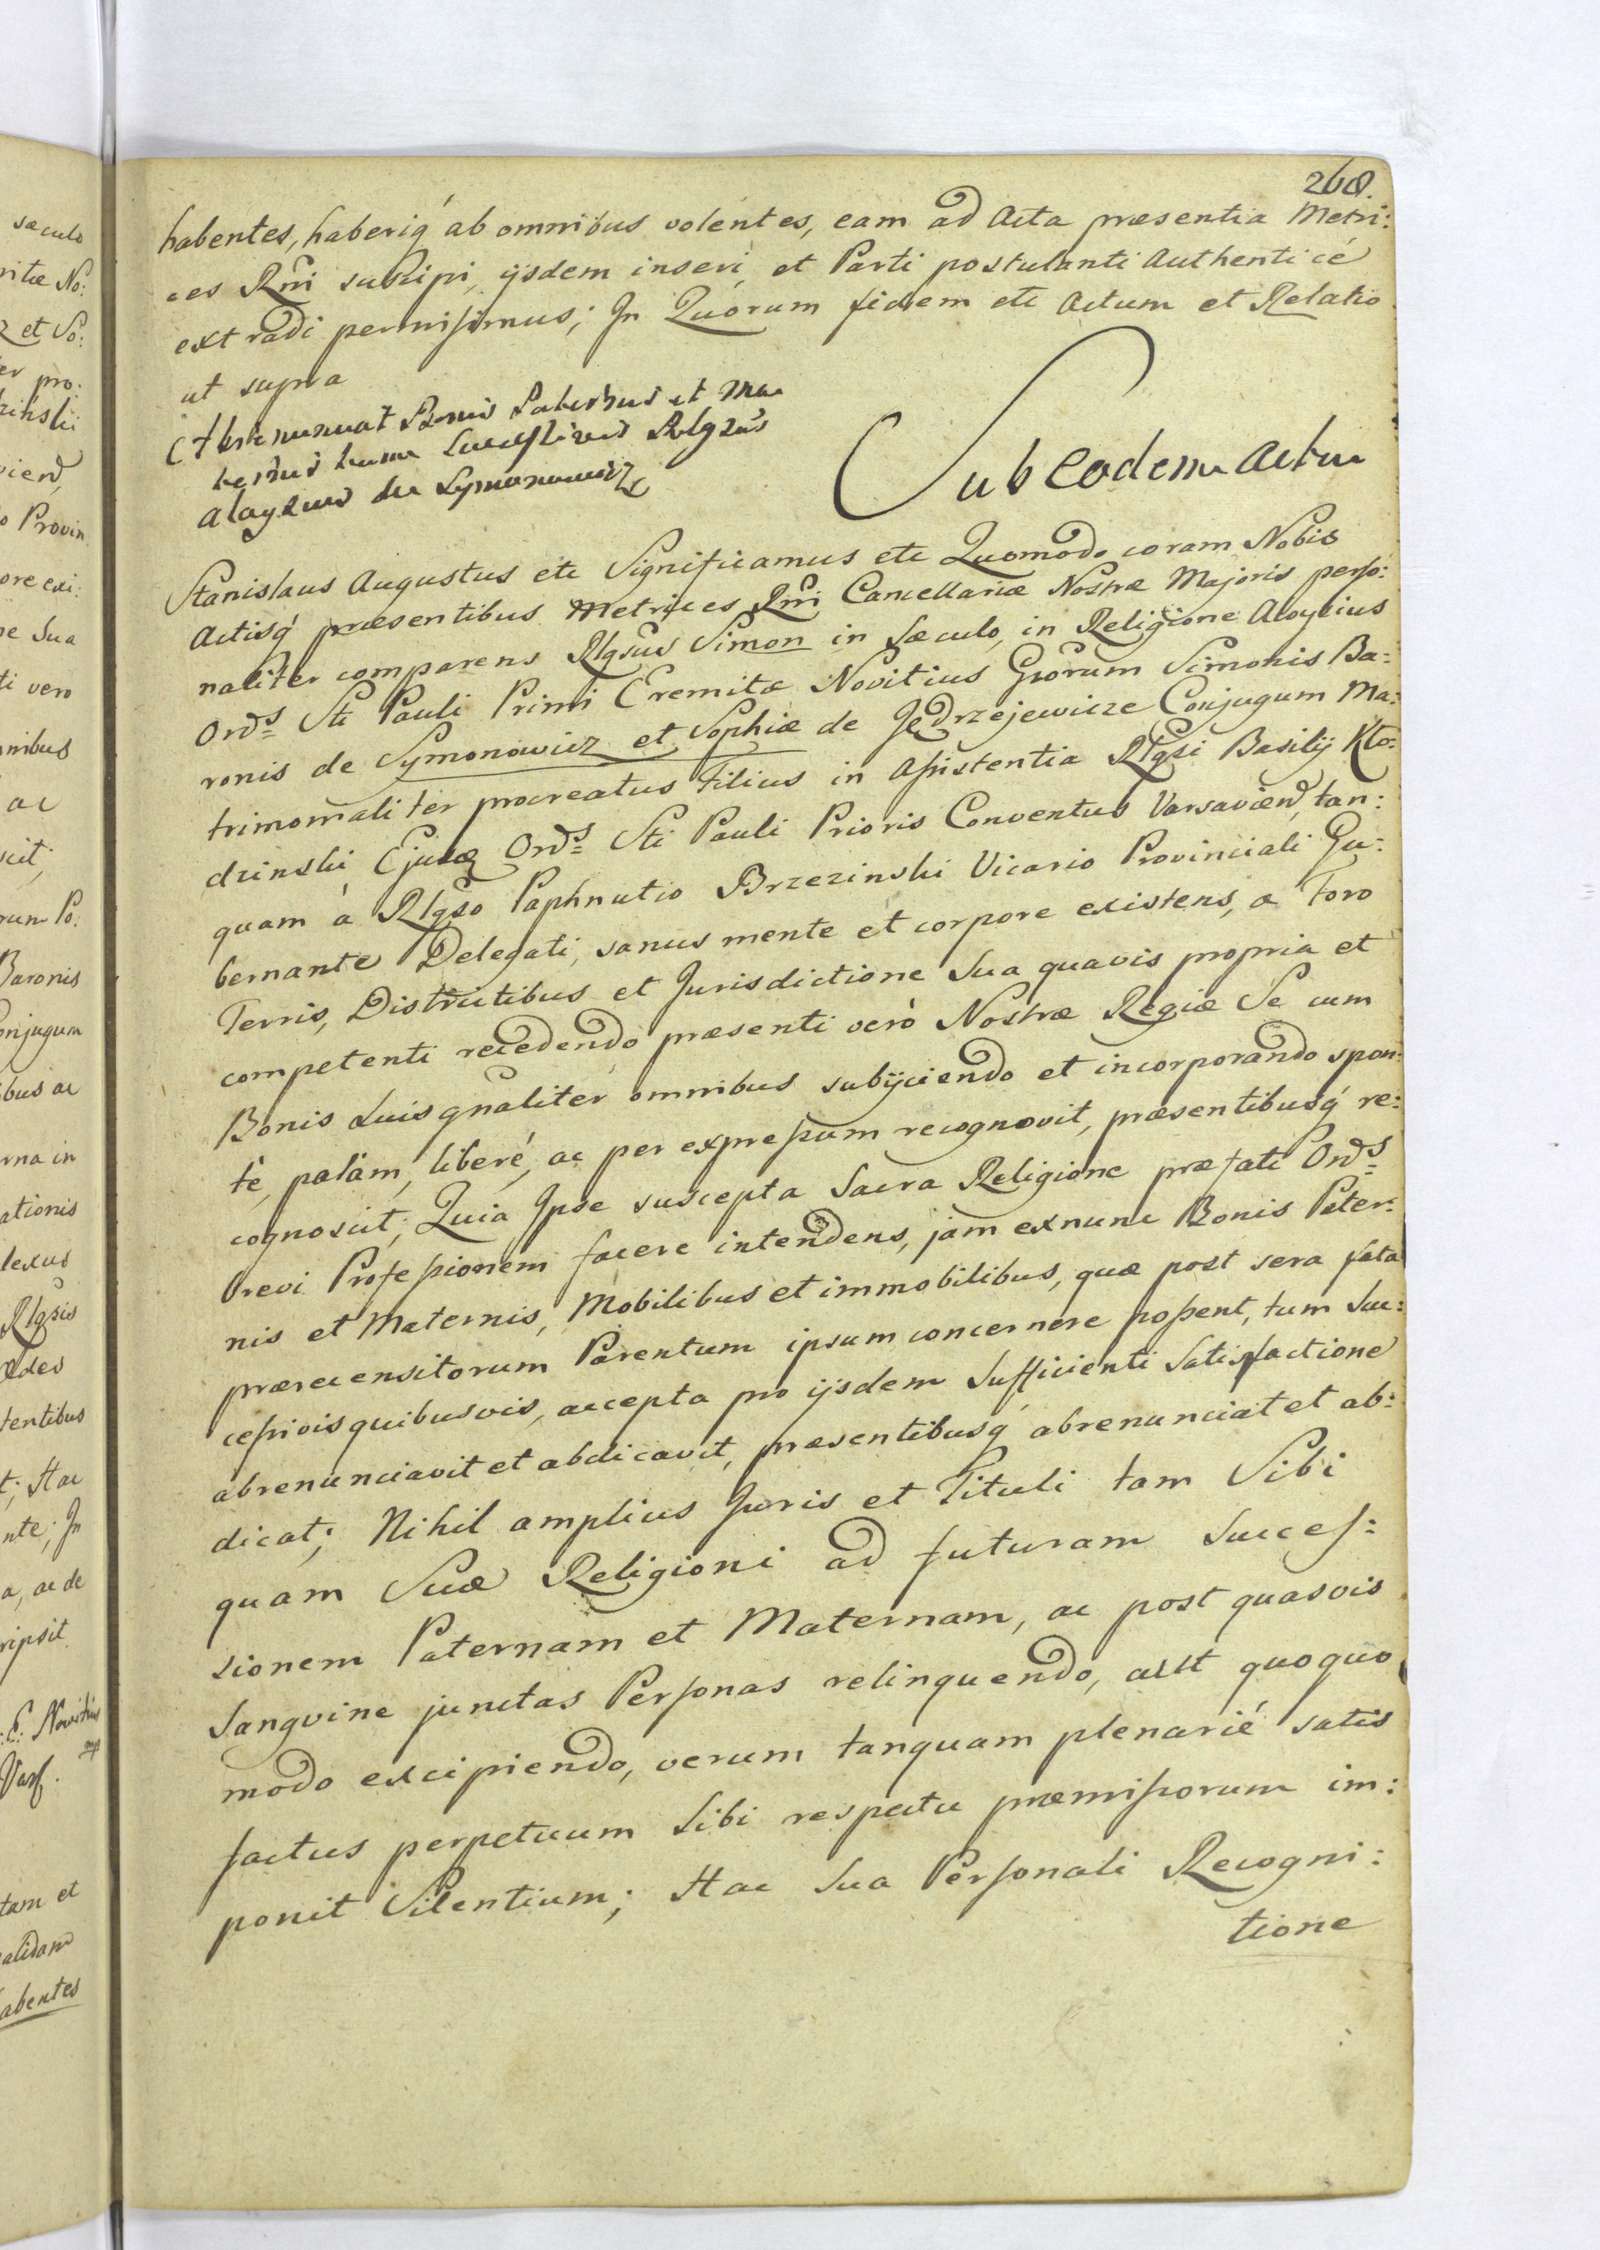 268
habentes, haberiq́ ab omnibus volentes, eam ad Acta præsentia Metri:
ces Rñi suscipi, ijsdem inseri, et Parti postulanti Authenticé
extradi permisimus; In Quórum fidem etc Actum et Relatio
ut supra
Abrenunciat Bonis Paternis et Ma
ternis tum Successivis Rlgsus
Aloyzius de Symonowicz
Sub eodem Actu
Stanislaus Augustus etc Significamus etc Quomodo coram Nobis
Actisq́ præsentibus Metrices Rñi Cancellariæ Nostræ Majoris perso:
naliter comparens Rlgsus Simon in Sæculo, in Religione Aloysius
Ordˢ Sti Pauli Primi Eremitæ Novitius Gsorum Simonis Ba:
ronis de Symonowicz et Sophiæ de Jędrzejewicze Conjugum Ma:
trimonialiter procreatus Filius in Assistentia Rlgsi Basilij Kło:
dzinski Ejusdꝫ Ordˢ Sti Pauli Prioris Conventus Varsavien, tan:
quam à Rlgso Paphnutio Brzezinski Vicario Provinciali Gu:
bernante Delegati, sanus mente et corpore existens, a Foro
Terris, Districtibus et Jurisdictione Sua quavis propria et
competenti recedendo præsenti verò Nostræ Regiæ Se cum
Bonis Suis gnaliter omnibus subijciendo et incorporando spon:
tè, palàm, liberé, ac per expressum recognovit, præsentibusq́ re:
cognoscit; Quia Ipse suscepta Sacra Religione præfati Ordˢ
brevi Professionem facere intendens, jam exnunc Bonis Pater:
nis et Maternis, Mobilibus et immobilibus, quæ post sera fata
prærecensitorum Parentum ipsum concernere possent, tum Suc:
cessivis quibusvis, accepta pro ijsdem Sufficienti Satisfactione
abrenunciavit et abdicavit, præsentibusq́ abrenunciat et ab:
dicat; Nihil amplius Juris et Tituli tam Sibi
quam Suæ Religioni ad futuram Succes:
sionem Paternam et Maternam, ac post quasvis
Sangvine junctas Personas relinquendo, aut quoquo
modo excipiendo, verum tanquam plenarié satis
factus perpetuum Sibi respectu præmissorum im:
ponit Silentium; Hac Sua Personali Recogni:
tione